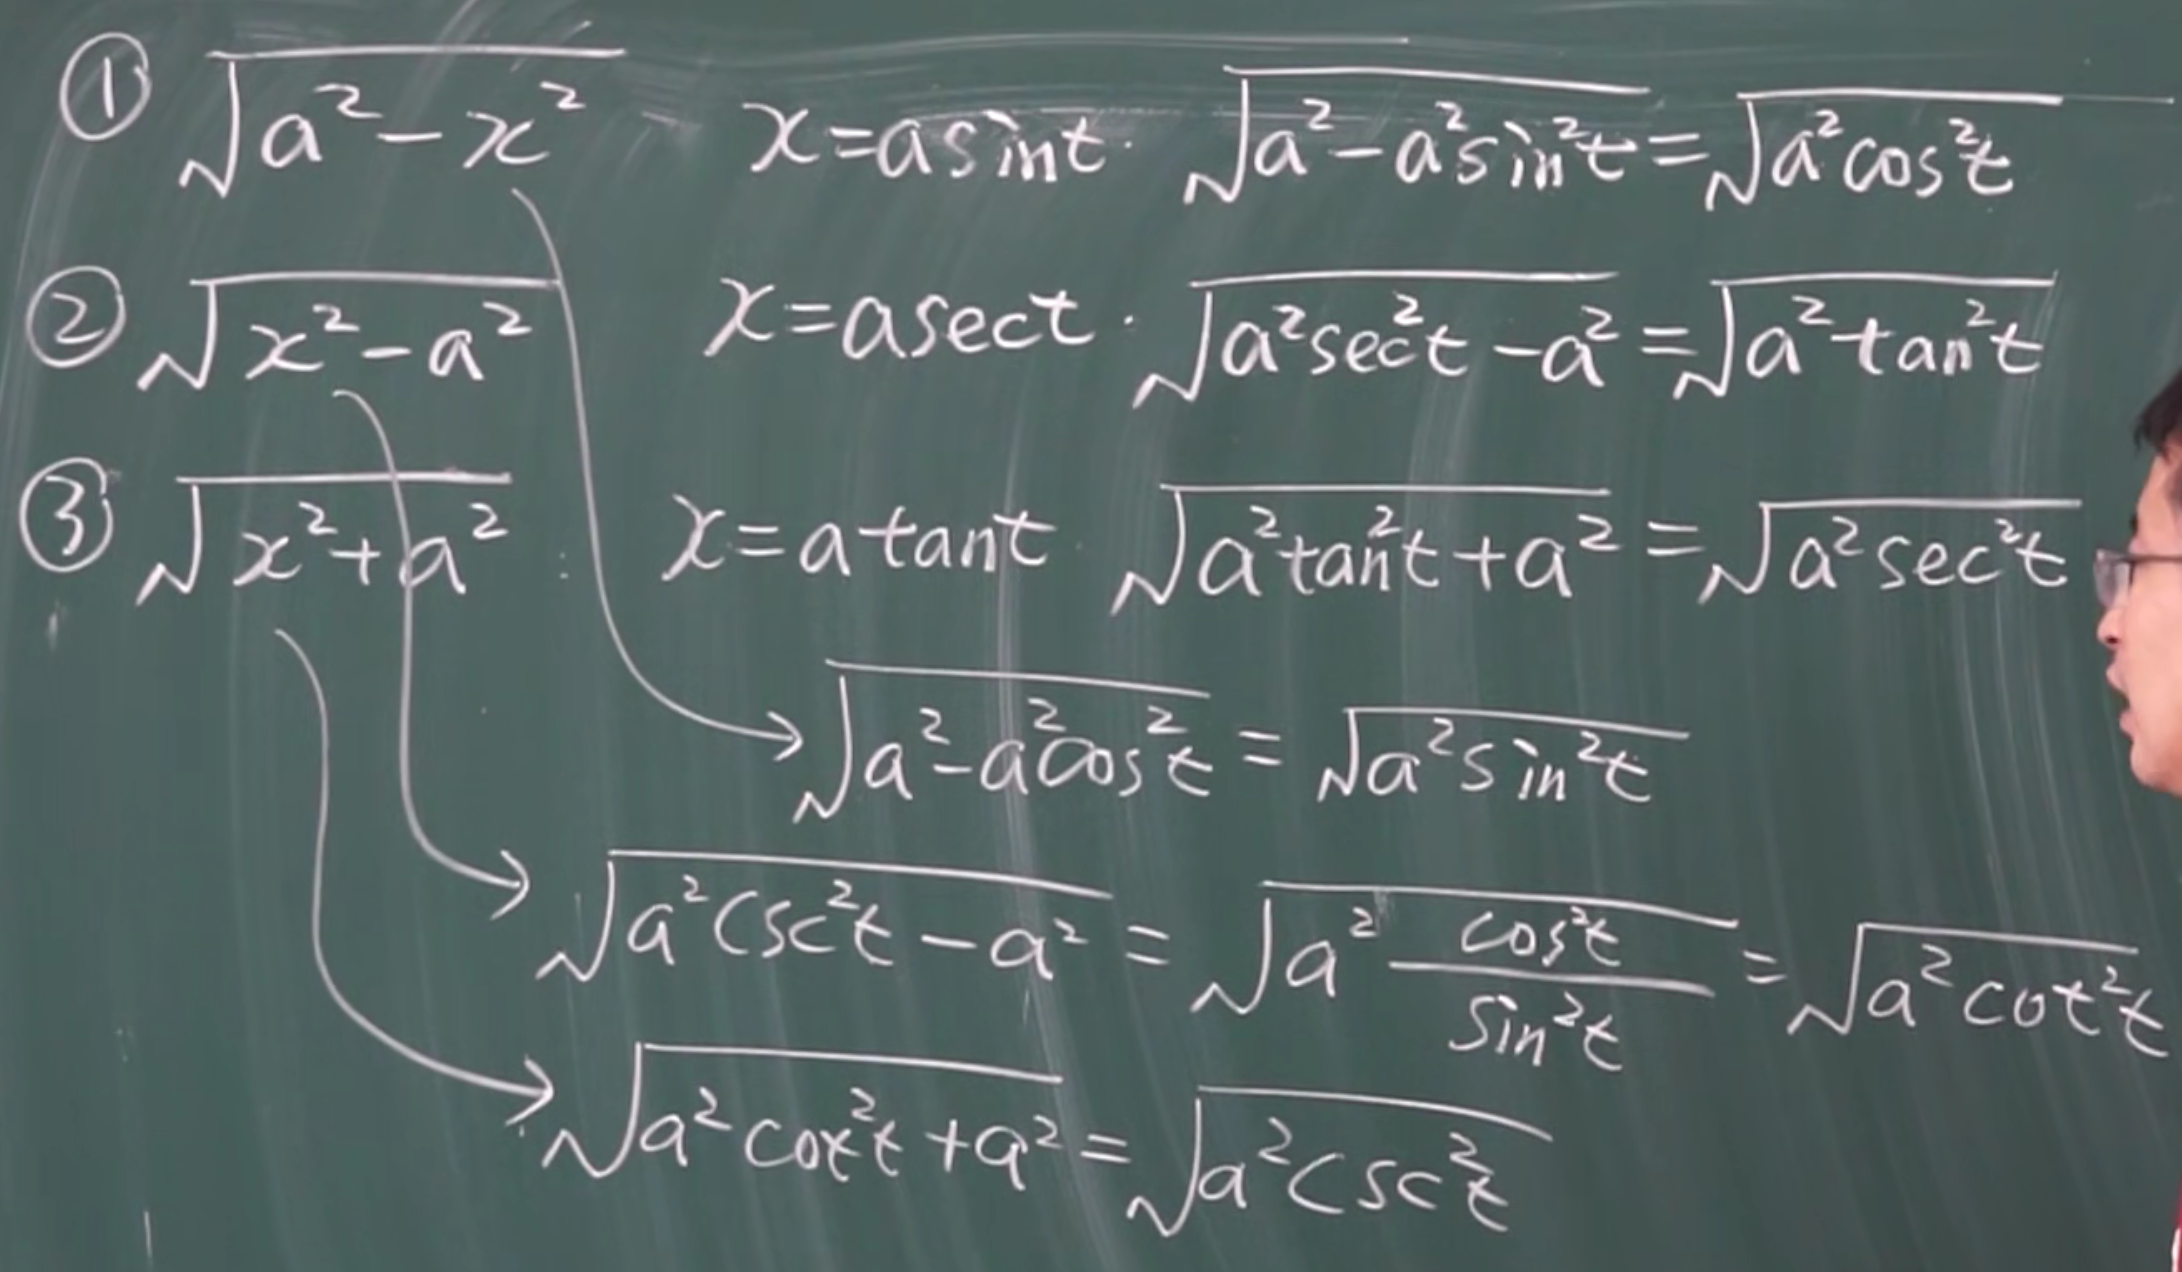 ① √(a²-x²) x=asint. √(a²-a²sin²t)=√(a²cos²t)
② √(x²-a²) x=asect. √(a²sec²t-a²)=√(a²tan²t)
③ √(x²+a²) x=atant √(a²tan²t+a²)=√(a²sec²t)
√(a²-a²cos²t)=√(a²sin²t)
√(a²csc²t-a²)=√(a² cos²t/sin²t)=√(a²cot²t)
√(a²cot²t+a²)=√(a²csc²t)